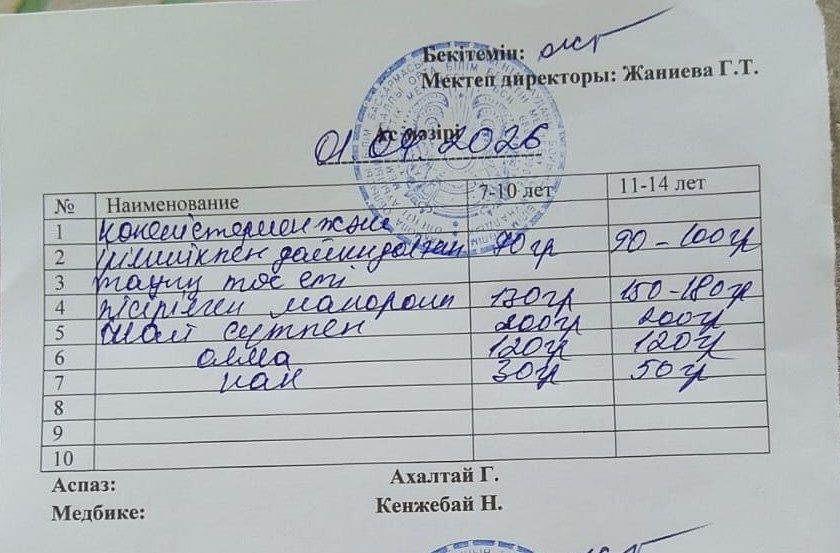 Бекітемін:
Мектеп директоры: Жаниева Г.Т.
Ас мәзірі
01.04.2026
№ Наименование 7-10 лет 11-14 лет
1 көкөністермен және
2 ірімшікпен дайындалған 90гр 90-100гр
3 тауық төс еті
4 пісірілген макарон 130гр 150-180гр
5 шай сүтпен 200гр 200гр
6 алма 120гр 120гр
7 нан 30гр 50гр
8
9
10
Аспаз: Ахалтай Г.
Медбике: Кенжебай Н.